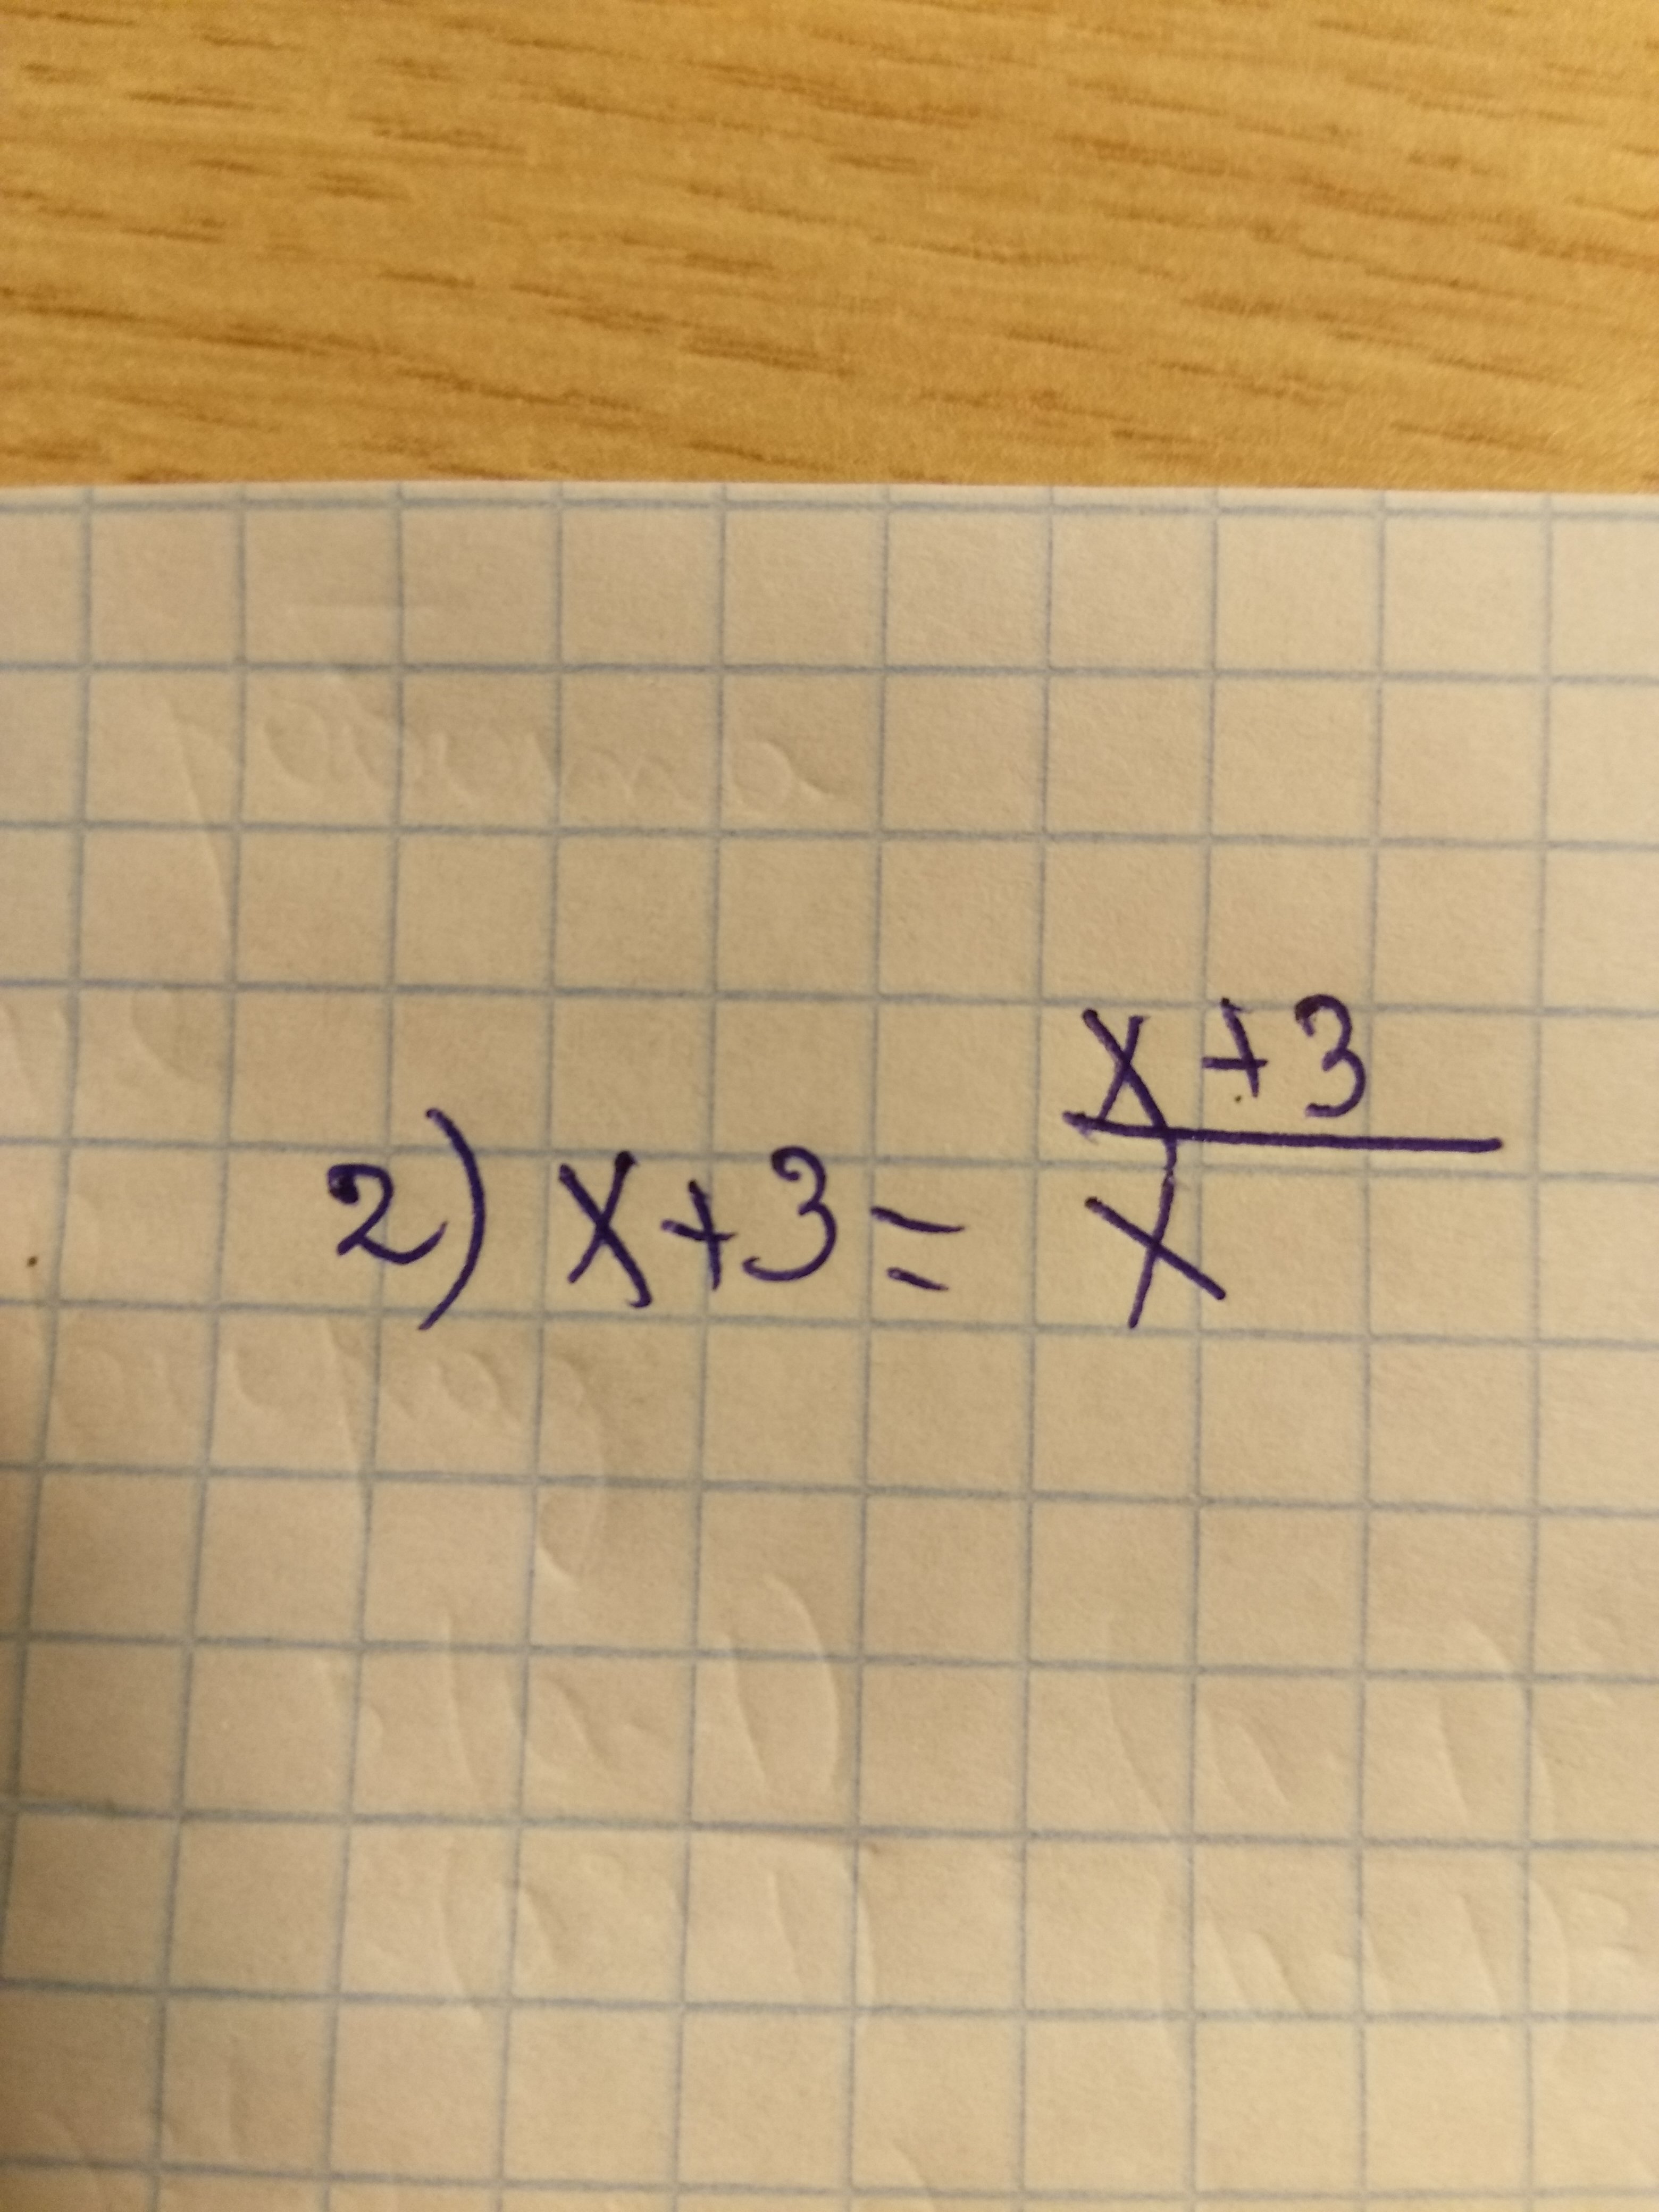 2) x+3= x+3/x